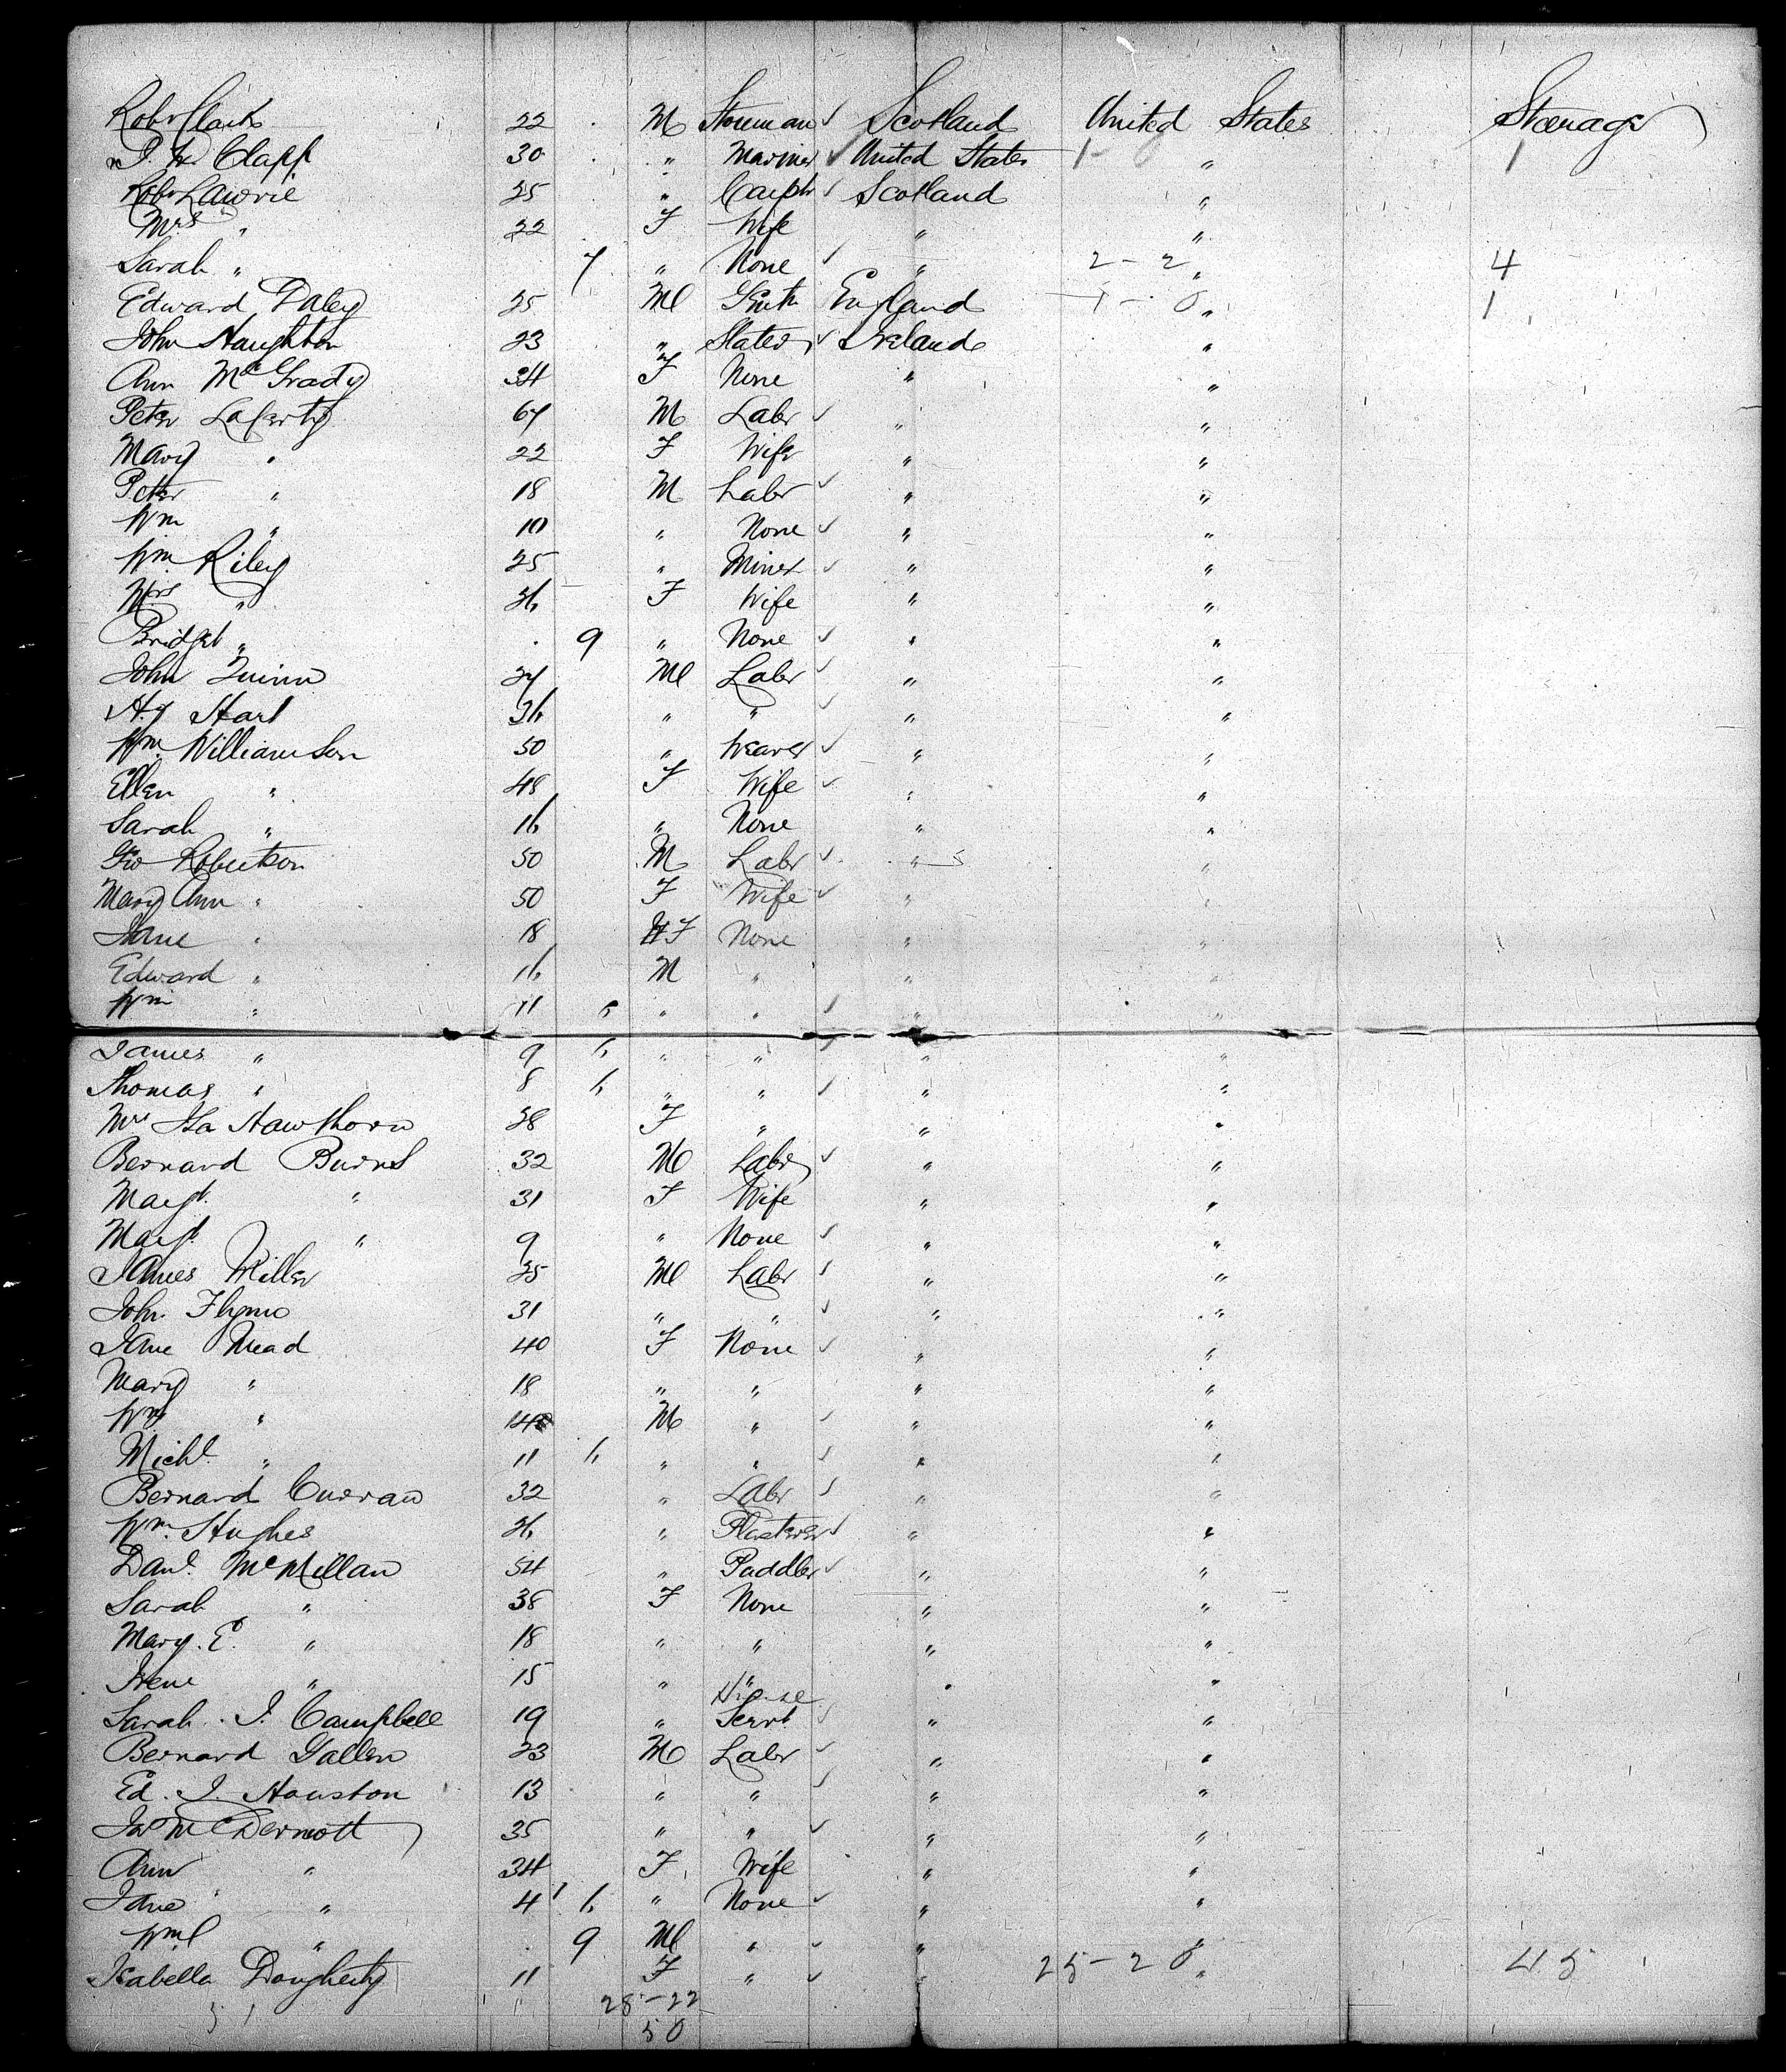 Robt Clark 22 M Storeman ✓ Scotland United States Steerage
J. W. Clapp 30 " Mariner ✓ United States 1- 0 " 1
Robt Lawrie 25 " Carptr ✓ Scotland "
Mrs " 22 F Wife " "
Sarah " 7 " None ✓ " 2-2 " 4
Edward Daley 25 Ml England 1-0 " 1
John Haughton 23 " Slater ✓ Ireland "
Ann McGrady 34 F None " "
Peter Laferty 67 M Labr ✓ " "
Mary " 22 F Wife " "
Peter " 18 M Labr ✓ " "
Wm " 10 " None ✓ " "
Wm Riley 25 " Miner ✓ " "
Mrs " 26 F Wife " "
Bridget " 9 " None ✓ " "
John Quinn 24 Ml Labr ✓ " "
Hart 36 " " ✓ " "
Wm. Williamson 50 " Weaver ✓ " "
Ellen " 48 F Wife ✓ " "
Sarah " 16 " None " "
Geo Robertson 50 M Labr ✓ " "
Mary Ann " 50 F Wife ✓ " "
Jane " 18 F None " "
Edward " 16 M " " "
Wm " 11 6 " " ✓ " "
James " 9 6 " " ✓ " "
Thomas " 8 6 " " ✓ " "
Mrs Isa Hawthorn 38 F " " "
Bernard Burns 32 M Labr ✓ " "
Margt. " 31 F Wife " "
Margt. " 9 " None ✓ " "
James Miller 25 Ml Labr ✓ " "
John Flynn 31 " " ✓ " "
Jane Mead 40 F None ✓ " "
Mary " 18 " " " "
Wm " 14 M " ✓ " "
Michl. " 11 6 " " ✓ " "
Bernard Curran 32 " Labr ✓ " "
Wm. Hughes 26 " Plasterer ✓ " "
Danl. McMillan 54 " Puddler ✓ " "
Sarah " 38 F None " "
Mary. E. " 18 " " " "
Irene " 15 " " " "
House
Sarah J. Campbell 19 " Servt ✓ " "
Bernard Gallen 23 M Labr ✓ " "
Ed. J. Houston 13 " " ✓ " "
Jas McDermott 35 " " ✓ " "
Ann " 34 F Wife " "
Jane " 4 6 " None ✓ " "
Wm " 9 Ml " ✓ " "
Isabella Dougherty 11 F " ✓ " 25-20 " 45
28-22
50